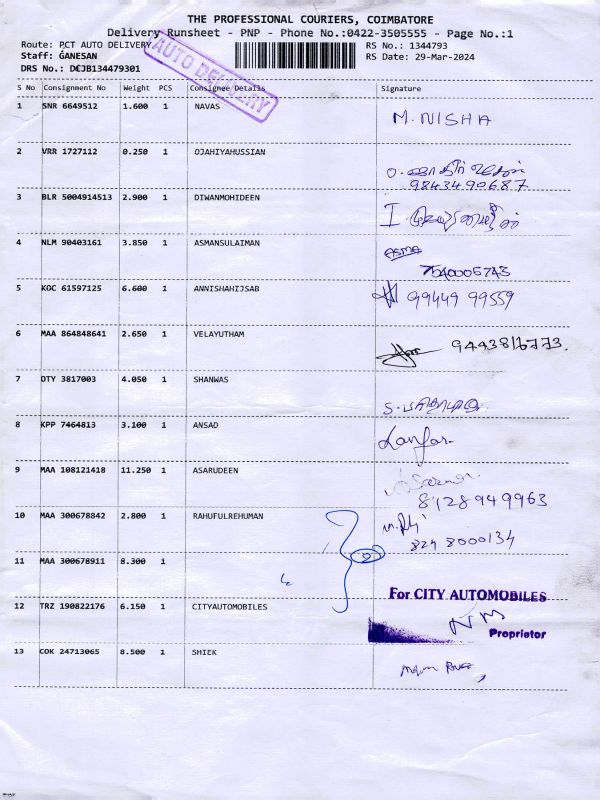 THE PROFESSIONAL COURIERS, COIMBATORE
Delivery Runsheet - PNP - Phone No.:0422-3505555 - Page No.:1
Route: PCT AUTO DELIVERY RS No.: 1344793
Staff: GANESAN RS Date: 29-Mar-2024
DRS No.: DCJB134479301
AUTO DELIVERY
S No Consignment No Weight PCS Consignee Details Signature
1 SNR 6649512 1.600 1 NAVAS M. NISHA
2 VRR 1727112 0.250 1 OJAHIYAHUSSIAN
9843490687
3 BLR 5004914513 2.900 1 DIWANMOHIDEEN
4 NLM 90403161 3.850 1 ASMANSULAIMAN ASMA
5 KOC 61597125 6.600 1 ANNISHAHIJSAB 99449 99559
6 MAA 864848641 2.650 1 VELAYUTHAM
7 OTY 3817003 4.050 1 SHANWAS
8 KPP 7464813 3.100 1 ANSAD
9 MAA 108121418 11.250 1 ASARUDEEN
8428949963
10 MAA 300678842 2.800 1 RAHUFULREHUMAN
8248000134
11 MAA 300678911 8.300 1
For CITY AUTOMOBILES
12 TRZ 190822176 6.150 1 CITYAUTOMOBILES
Proprietor
13 COK 24713065 8.500 1 SHIEK